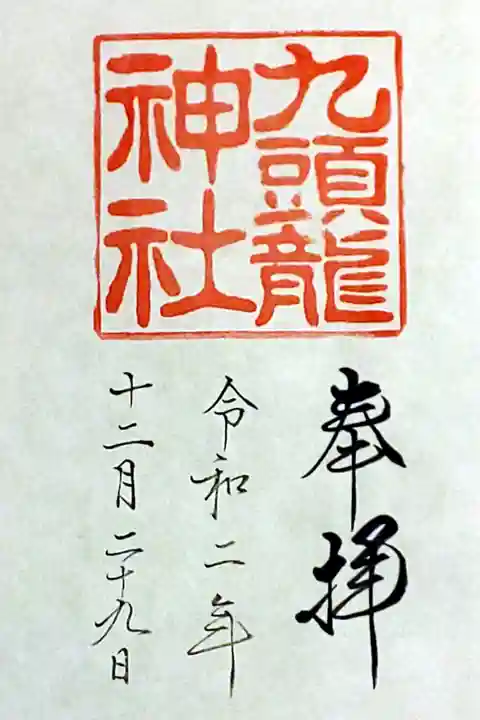 九頭龍
神社
奉拝
令和二年
十二月二十九日